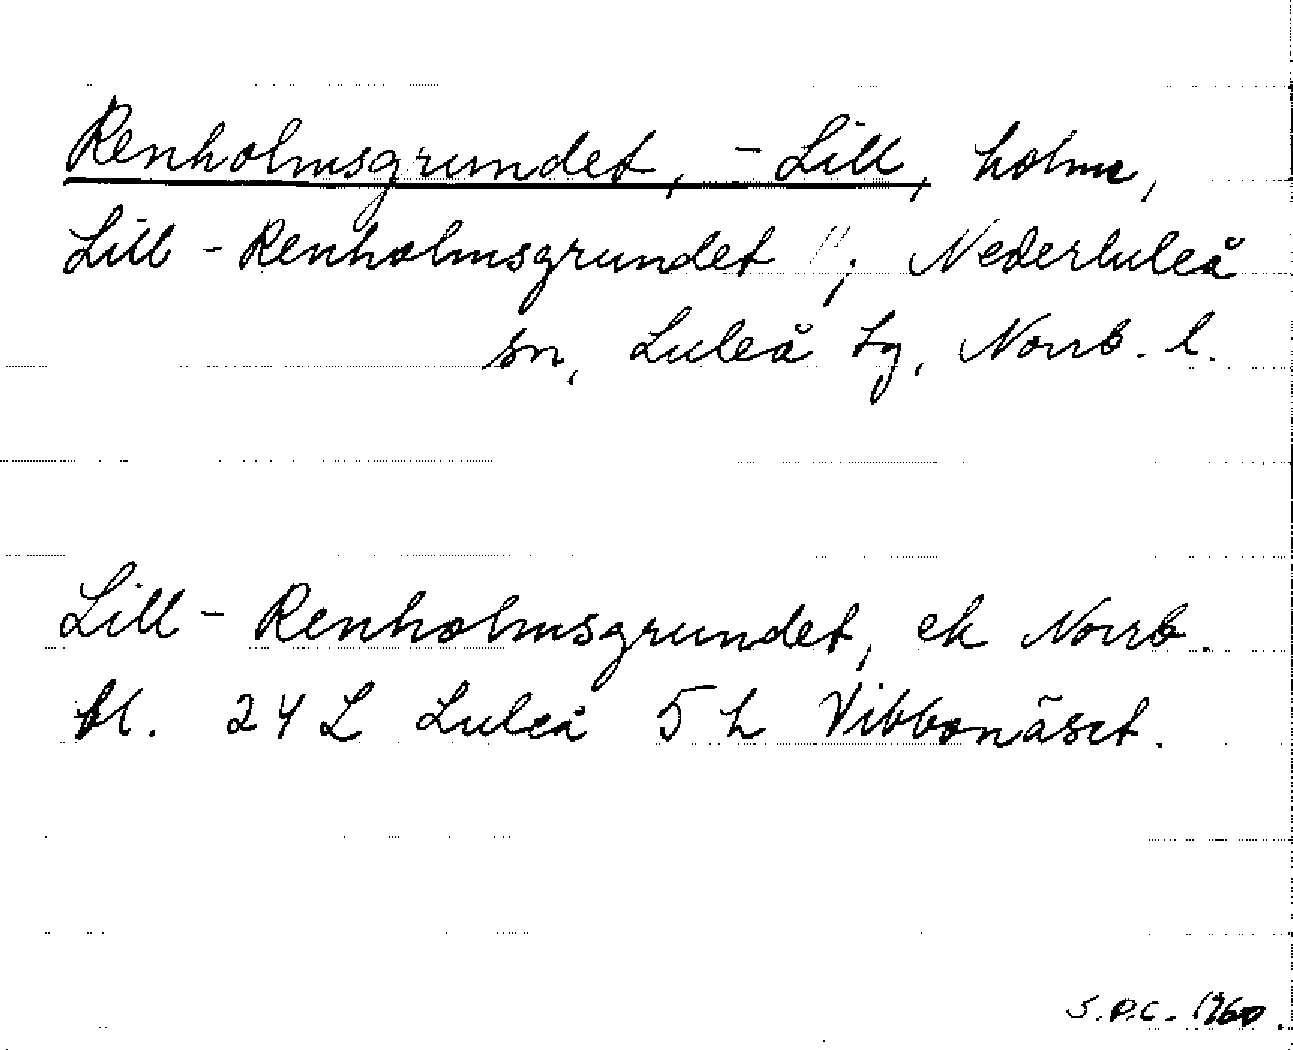 Renholmsgrundet, - Lill, holme,
Lill - Renholmsgrundet "; Nederluleå
sn, Luleå tg, Norrb. l.
Lill - Renholmsgrundet, ek Norrb.
bl. 24 L Luleå 5 h Vibbonäset.
S.P.C. 1960.